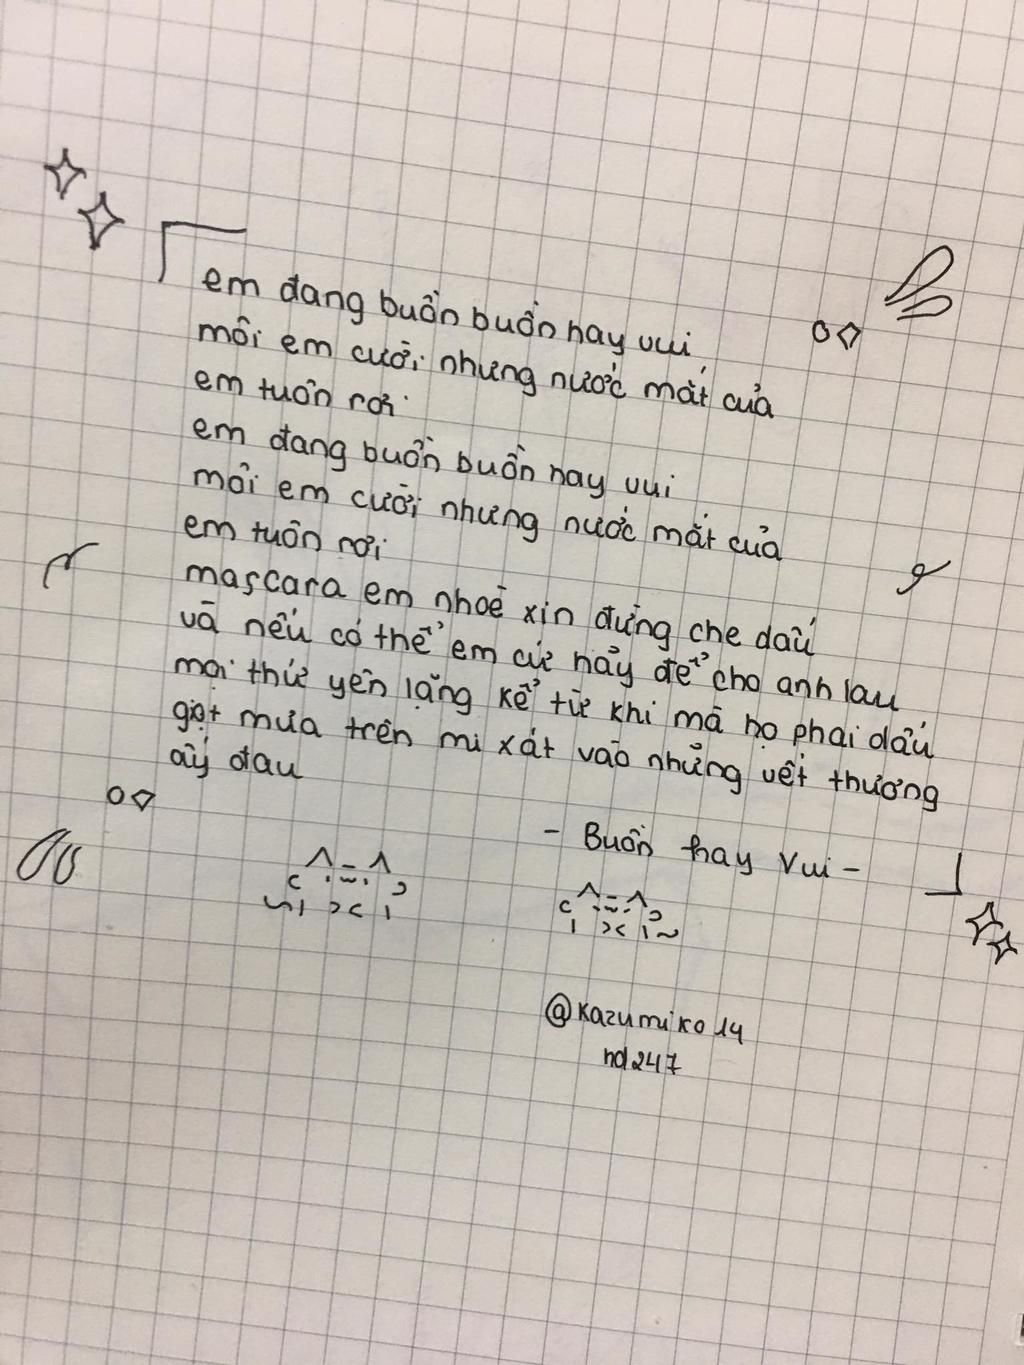 em đang buồn buồn hay vui
môi em cười nhưng nước mắt của
em tuôn rơi
em đang buồn buồn hay vui
môi em cười nhưng nước mắt của
em tuôn rơi
mascara em nhoè xin đừng che dấu
và nếu có thể em cứ hãy để cho anh lau
mọi thứ yên lặng kể từ khi mà họ phai dấu
giọt mưa trên mi xát vào những vết thương
ấy đau
- Buồn hay Vui -
@kazumiko14
nd247